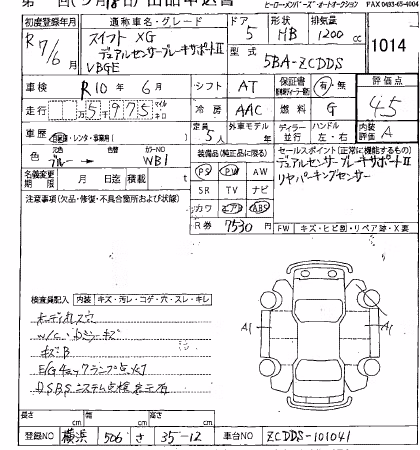 ヒーローメンバーズ・オートオークション FAX 0493-65-4004
初度登録年月 通称車名・グレード ドア 形状 排気量
R7/6月 スイフト XG 5 HB 1200cc 1014
デュアルセンサーブレーキサポートⅡ
VBGE 型式 5BA-ZCDDS
車検 R10年 6月 シフト AT 保証書 有・無 評価点
走行 5975 マイル キロ 冷房 AAC 燃料 G 4.5
車歴 自家用・レンタ・事業用( ) 定員 5人 外車モデル 年 ディーラー・並行 ハンドル 左・右 内装評価 A
色 元色 ブルー → 色替 カラーNO WB1
装備品(純正品に限る) セールスポイント(正常に機能するもの)
名義変更期限 月 日迄 積載 t
PS PW AW デュアルセンサーブレーキサポートⅡ
リヤパーキングセンサー
注意事項(欠品・修復・不具合箇所および状態)
SR TV ナビ
カワ エアB ABS
R券 7530円 FW キズ・ヒビ割・リペア跡・X要
検査員記入 内装 キズ・汚レ・コゲ・穴・スレ・キレ
A1 A1
キズB
E/Gチェックランプ点灯
DSBSシステム点検表示有
長さ cm 幅 cm 高さ cm
登録NO 横浜 506 さ 35-12 車台NO ZCDDS-101041